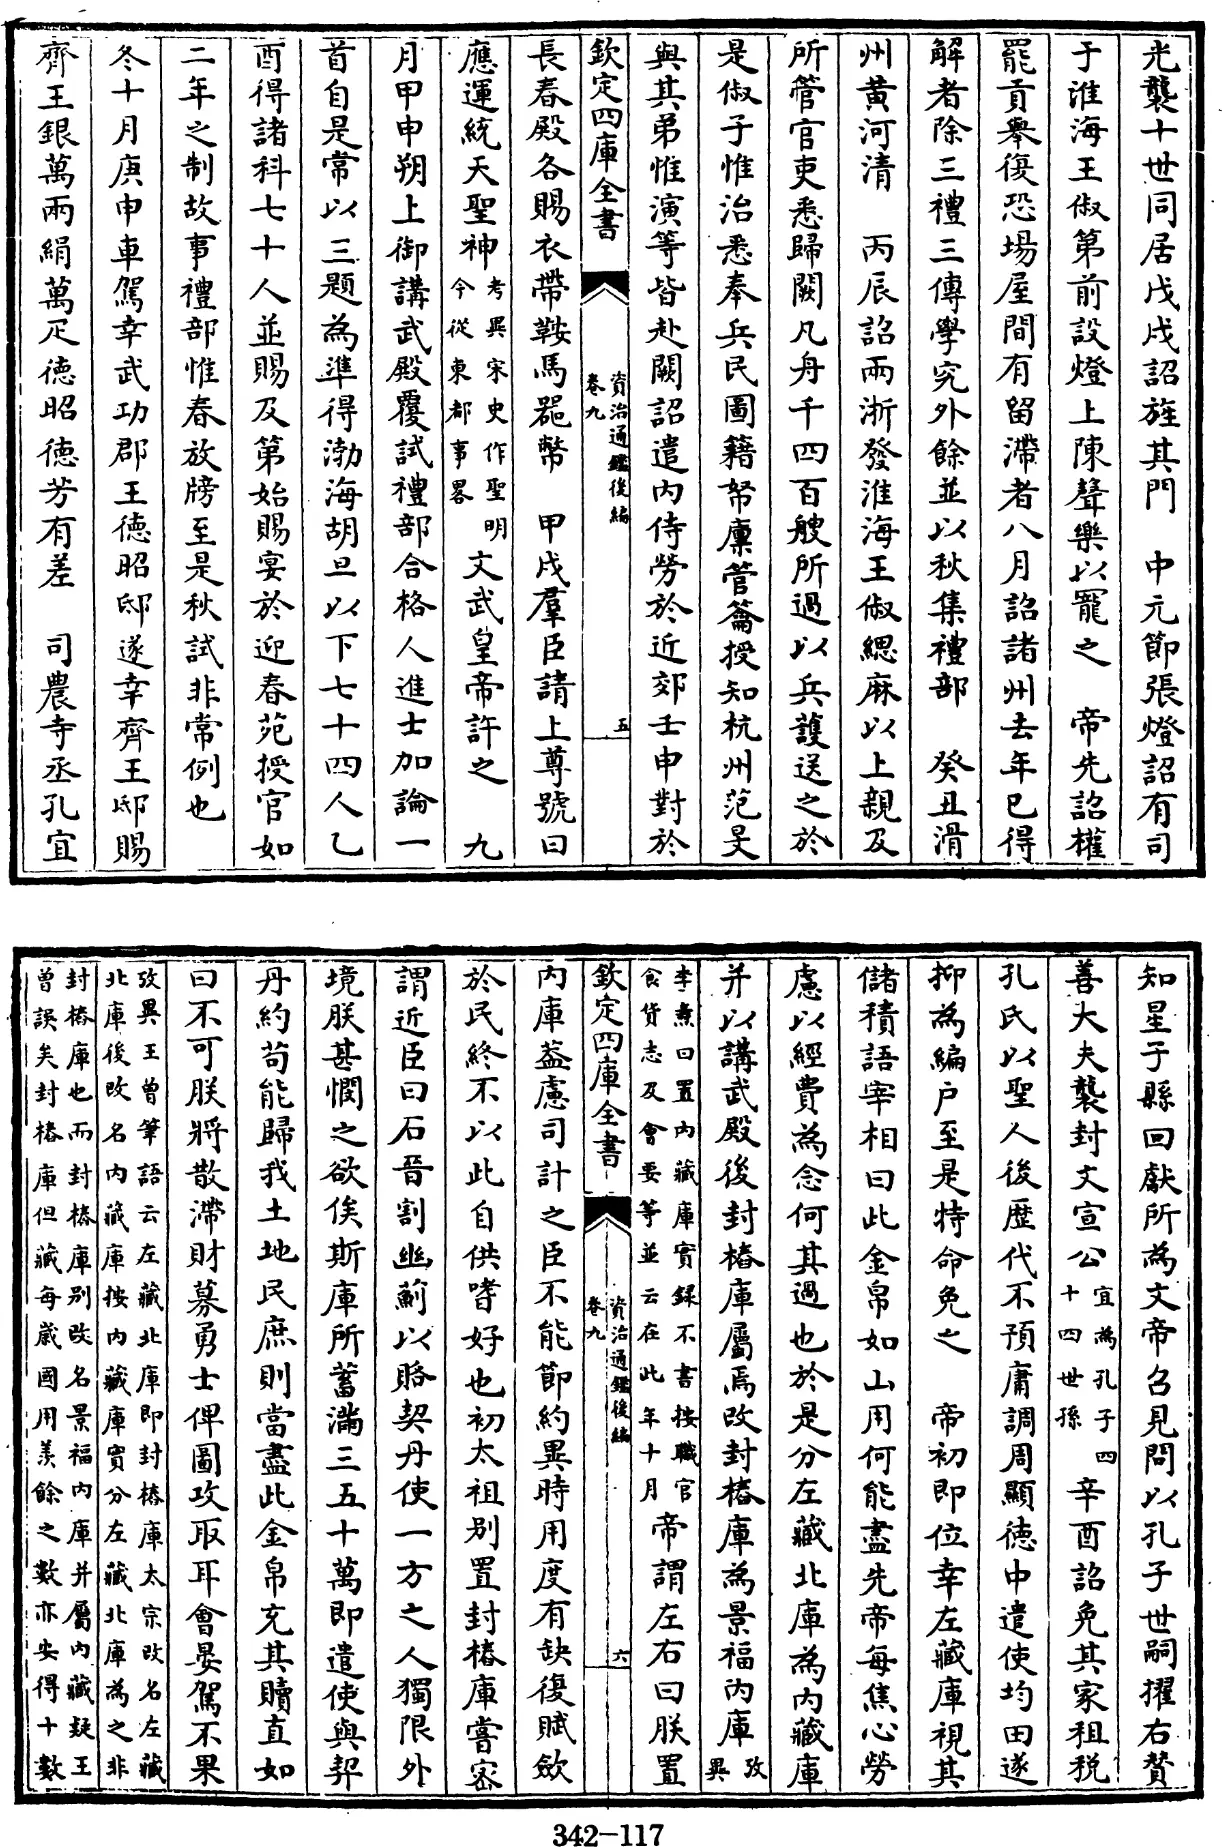 光襲十世同居戊戌詔旌其門　中元節張燈詔有司
于淮海王俶第前設燈上陳聲樂以寵之　帝先詔權
罷貢舉復恐場屋間有留滯者八月詔諸州去年已得
解者除三禮三傳學究外餘並以秋集禮部　癸丑滑
州黄河清　丙辰詔兩浙發淮海王俶緦麻以上親及
所管官吏悉歸闕凡舟千四百艘所過以兵護送之於
是俶子惟治悉奉兵民圖籍帑廪管籥授知杭州范旻
與其弟惟演等皆赴闕詔遣内侍勞於近郊壬申對於
欽定四庫全書　資治通鑑後編卷九　五
長春殿各賜衣帶鞍馬器幣　甲戌羣臣請上尊號曰
應運統天聖神考異宋史作聖明今從東都事畧文武皇帝許之　九
月甲申朔上御講武殿覆試禮部合格人進士加論一
首自是常以三題為準得渤海胡旦以下七十四人乙
酉得諸科七十人並賜及第始賜宴於迎春苑授官如
二年之制故事禮部惟春放牓至是秋試非常例也
冬十月庚申車駕幸武功郡王德昭邸遂幸齊王邸賜
齊王銀萬兩絹萬疋德昭德芳有差　司農寺丞孔宜
知星子縣回獻所為文帝召見問以孔子世嗣擢右贊
善大夫襲封文宣公宜為孔子四十四世孫辛酉詔免其家租税
孔氏以聖人後歴代不預庸調周顯德中遣使均田遂
抑為編戸至是特命免之　帝初即位幸左藏庫視其
儲積語宰相曰此金帛如山用何能盡先帝每焦心勞
慮以經費為念何其過也於是分左藏北庫為内藏庫
并以講武殿後封樁庫屬焉改封樁庫為景福内庫攷異
李燾曰置内藏庫實録不書按職官食貨志及會要等並云在此年十月帝謂左右曰朕置
欽定四庫全書　資治通鑑後編卷九　六
内庫葢慮司計之臣不能節約異時用度有缺復賦歛
於民終不以此自供嗜好也初太祖别置封樁庫嘗宻
謂近臣曰石晉割幽薊以賂契丹使一方之人獨限外
境朕甚憫之欲俟斯庫所蓄滿三五十萬即遣使與契
丹約苟能歸我土地民庶則當盡此金帛充其贖直如
曰不可朕將散滯財募勇士俾圖攻取耳會晏駕不果
攷異王曾筆語云左藏北庫即封樁庫太宗改名左藏北庫後改名内藏庫按内藏庫實分左藏北庫為之非
封樁庫也而封樁庫别改名景福内庫并屬内藏疑王曾誤矣封樁庫但藏每嵗國用羨餘之數亦安得十數
342-117